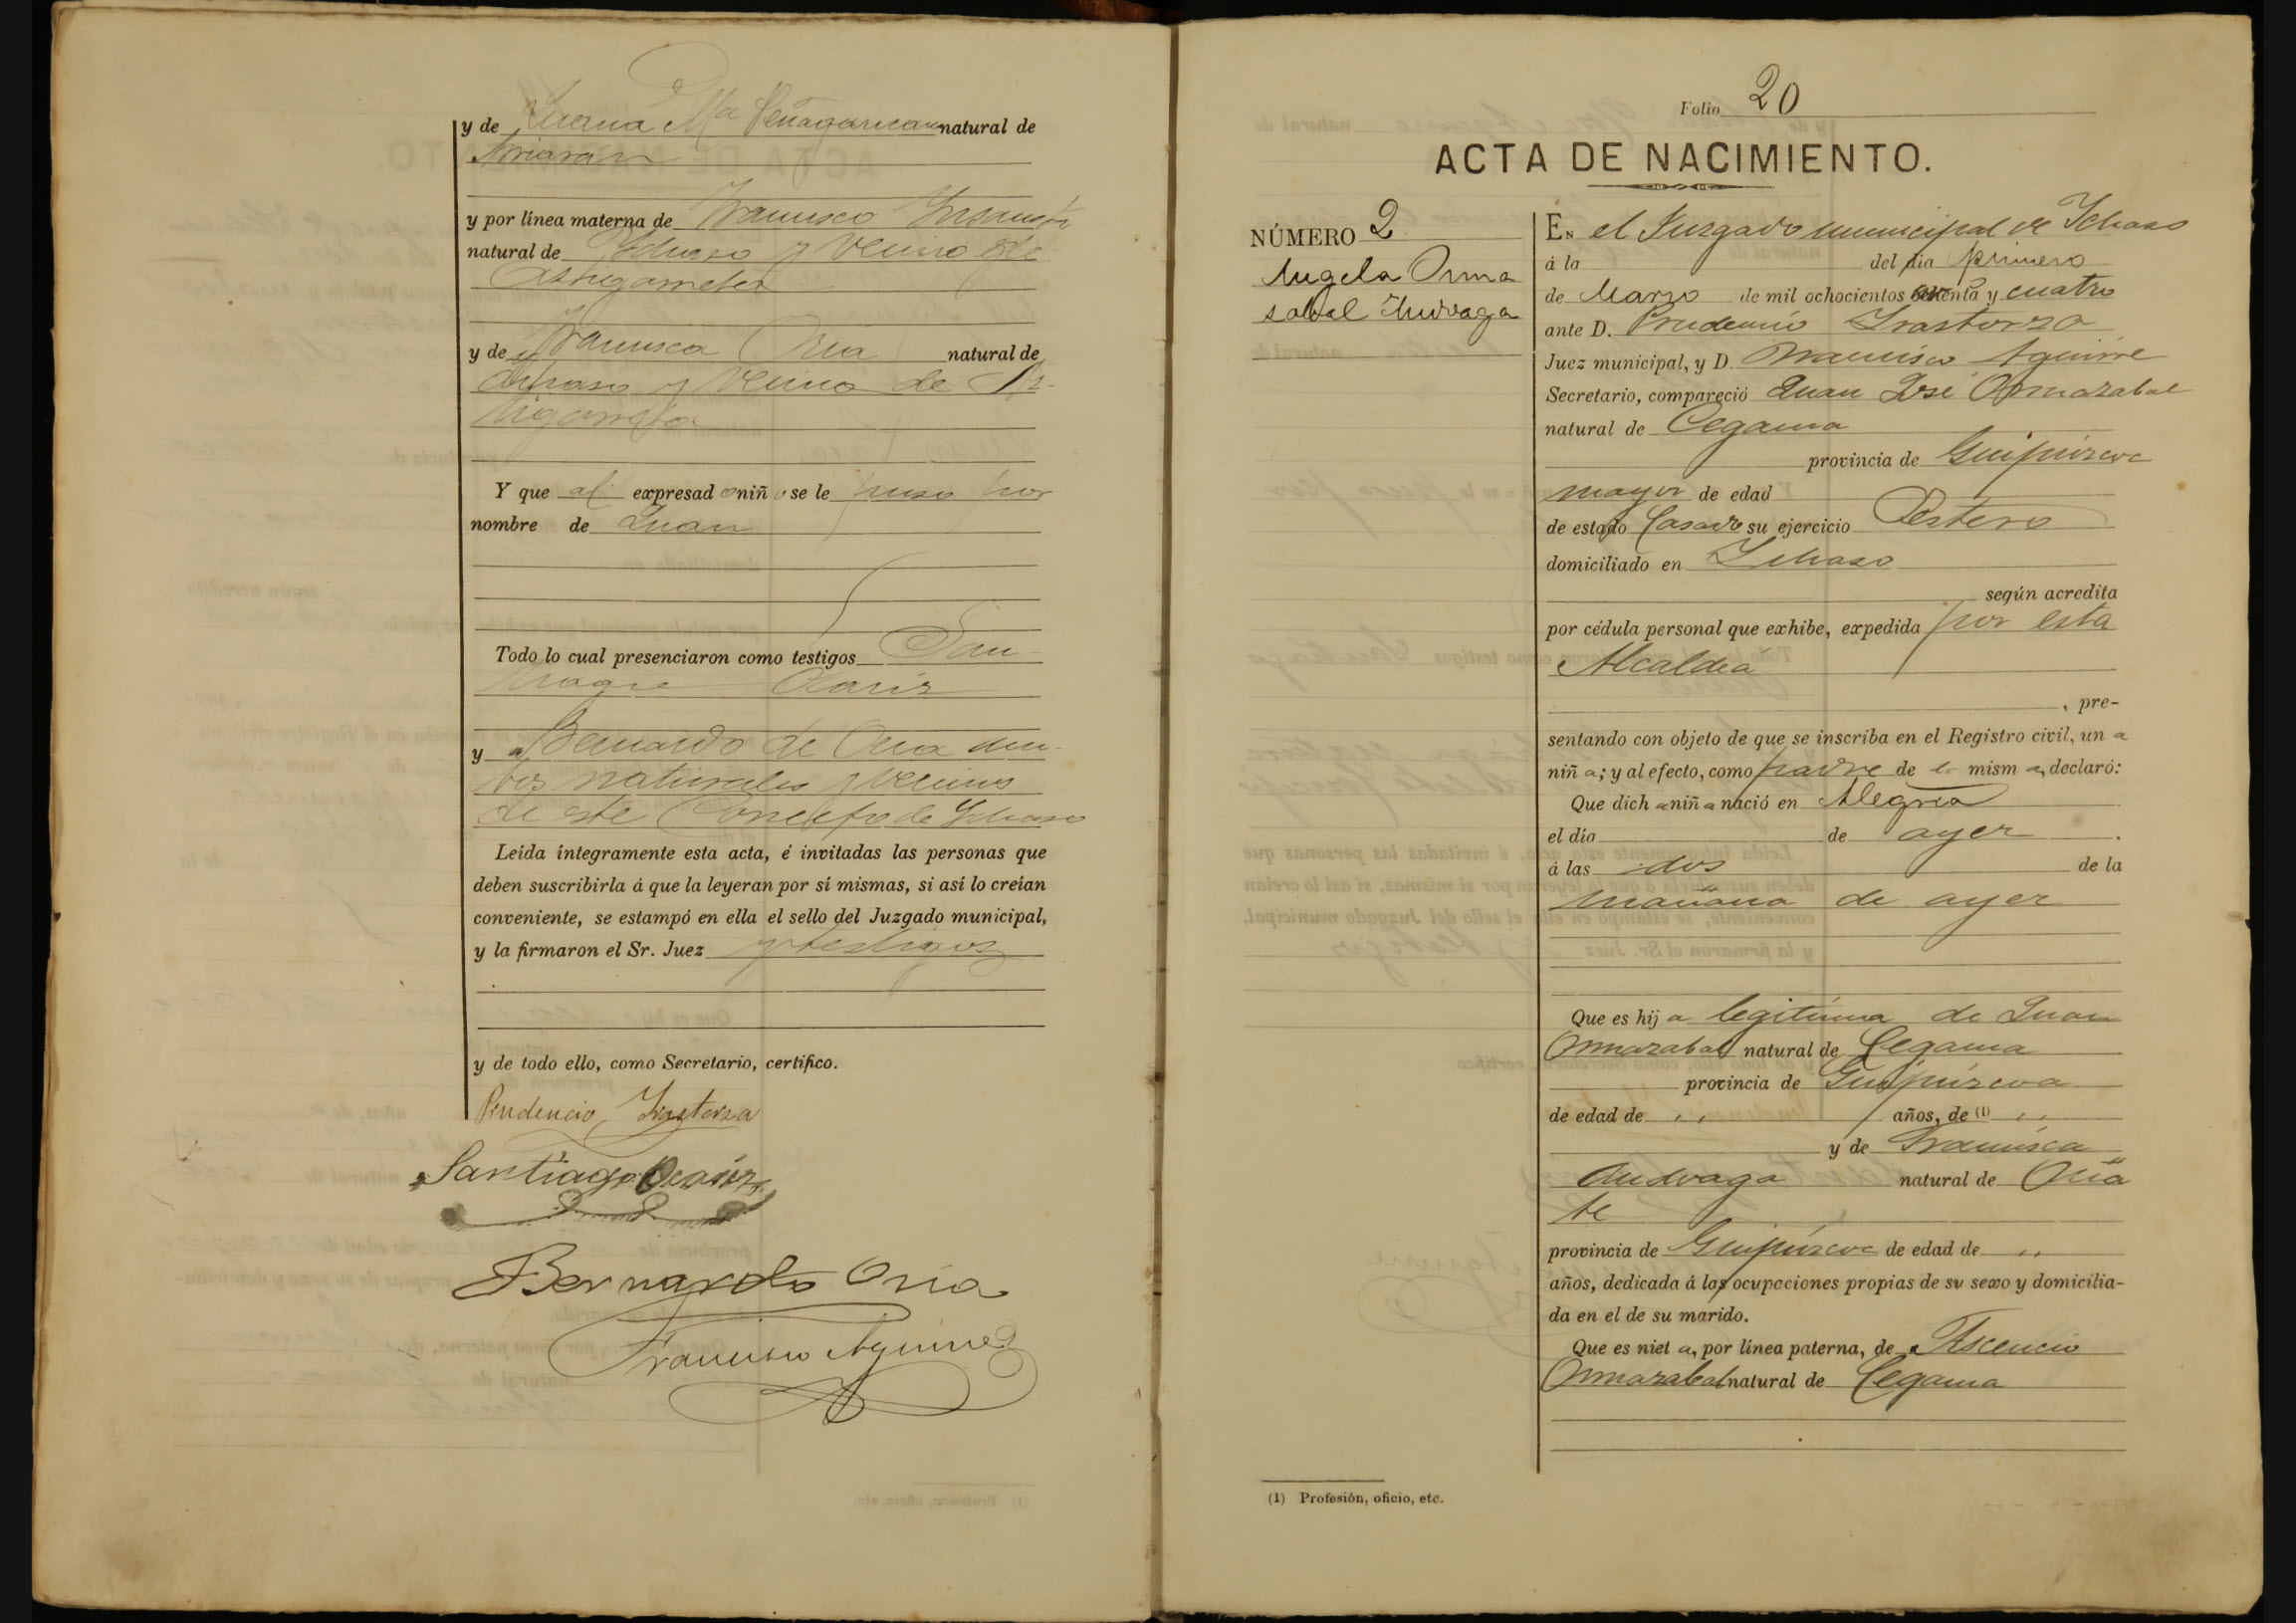 y de Juana Mª Peñagaricano natural de
Arriarán
y por línea materna de Francisco Insausti
natural de Ichaso y vecino de
Astigarreta
y de Francisca Oria natural de
Ichaso y vecina de As-
tigarreta
Y que al expresado niño se le puso por
nombre de Juan
Todo lo cual presenciaron como testigos San-
tiago Olariz
y a Bernardo de Oria am-
bos naturales y vecinos
de este Concejo de Ichaso
Leída íntegramente esta acta, é invitadas las personas que
deben suscribirla á que la leyeran por sí mismas, si así lo creían
conveniente, se estampó en ella el sello del Juzgado municipal,
y la firmaron el Sr. Juez y testigos
y de todo ello, como Secretario, certifico.
Prudencio Irastorza
Santiago
Bernardo Oria
Francisco Aguirre
Folio 20
ACTA DE NACIMIENTO.
NÚMERO 2
Angela Orma
sabal Andraga
EN el Juzgado municipal de Ichaso
á la del día primero
de Marzo de mil ochocientos ochenta y cuatro
ante D. Prudencio Irastorza
Juez municipal, y D. Francisco Aguirre
Secretario, compareció Juan José Ormazabal
natural de Cegama
provincia de Guipúzcoa
mayor de edad
de estado Casado su ejercicio Pastero
domiciliado en Ichaso
según acredita
por cédula personal que exhibe, expedida por esta
Alcaldia
, pre-
sentando con objeto de que se inscriba en el Registro civil, una
niña; y al efecto, como padre de la misma, declaró:
Que dicha niña nació en Alegria
el día de ayer
á las dos de la
mañana de ayer
Que es hija legitima de Juan
Ormazabal natural de Cegama
provincia de Guipúzcoa
de edad de ,, años, de (1) ,,
y de Francisca
Andraga natural de Oña
te
provincia de Guipúzcoa de edad de ,,
años, dedicada á las ocupaciones propias de su sexo y domicilia-
da en el de su marido.
Que es nieta, por línea paterna, de Ascencio
Ormazabal natural de Cegama
(1) Profesión, oficio, etc.